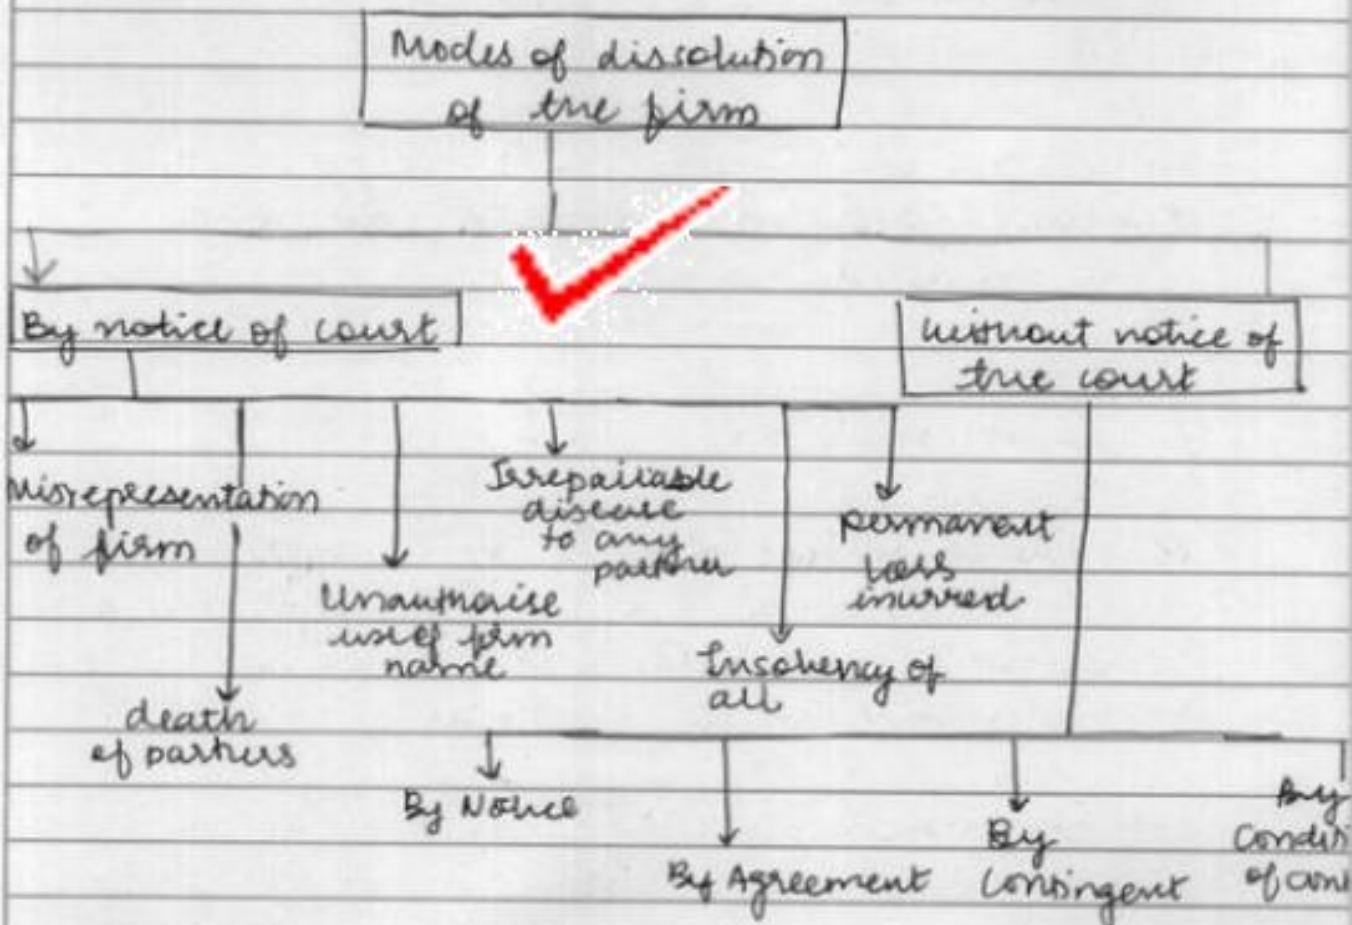 Modes of dissolution
of the firm
By notice of court
without notice of
the court
Misrepresentation
of firm
death
of partners
Unauthorise
use of firm
name
Irrepairable
disease
to any
partner
Insolvency of
all
permanent
loss
incurred
By Notice
By Agreement
By
Contingent
By
of